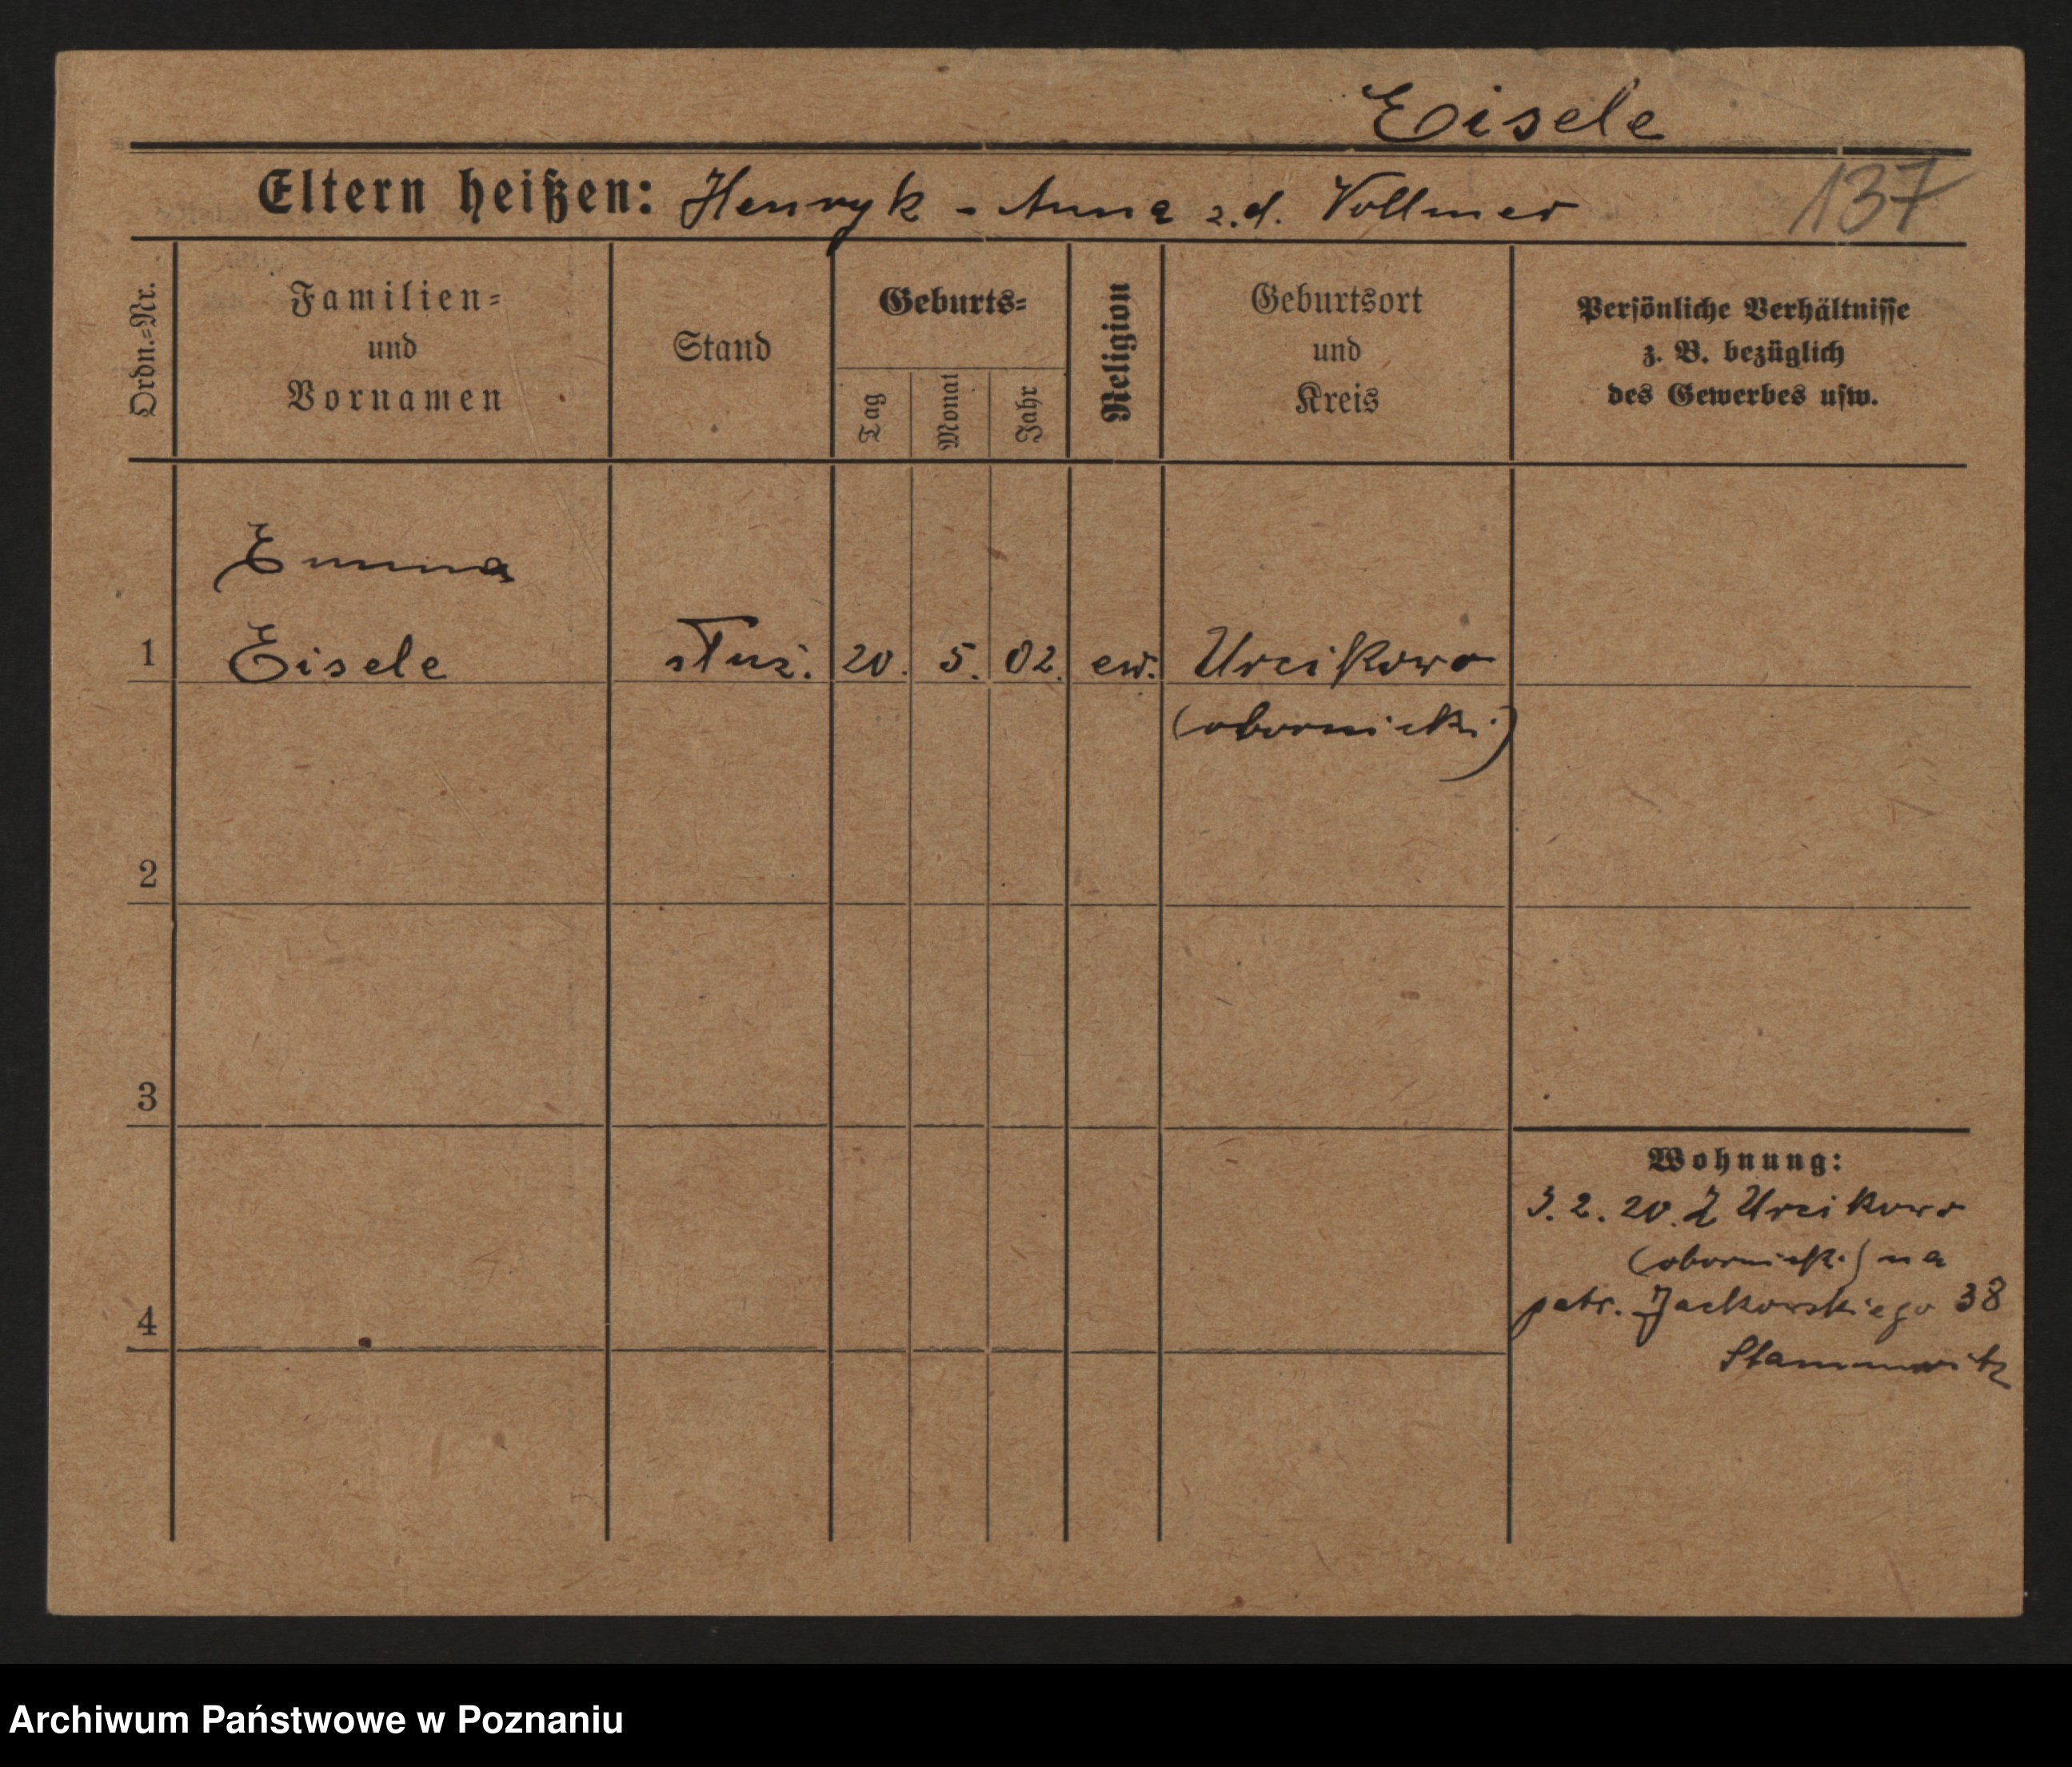 Eisele
Eltern heißen: Henryk - Anna z.d. Vollmer
137
Ordn.=Nr.
Familien=
und
Vornamen
Stand
Geburts=
Tag
Monat
Jahr
Religion
Geburtsort
und
Kreis
Persönliche Verhältnisse
z. B. bezüglich
des Gewerbes usw.
Emma
1 Eisele służ. 20. 5. 02. ew. Urcikowo
(obornicki)
2
3
4
Wohnung:
3. 2. 20. Z Urcikowo
(obornick.) na
patr. Jackowskiego 38
Stammwitz
Archiwum Państwowe w Poznaniu